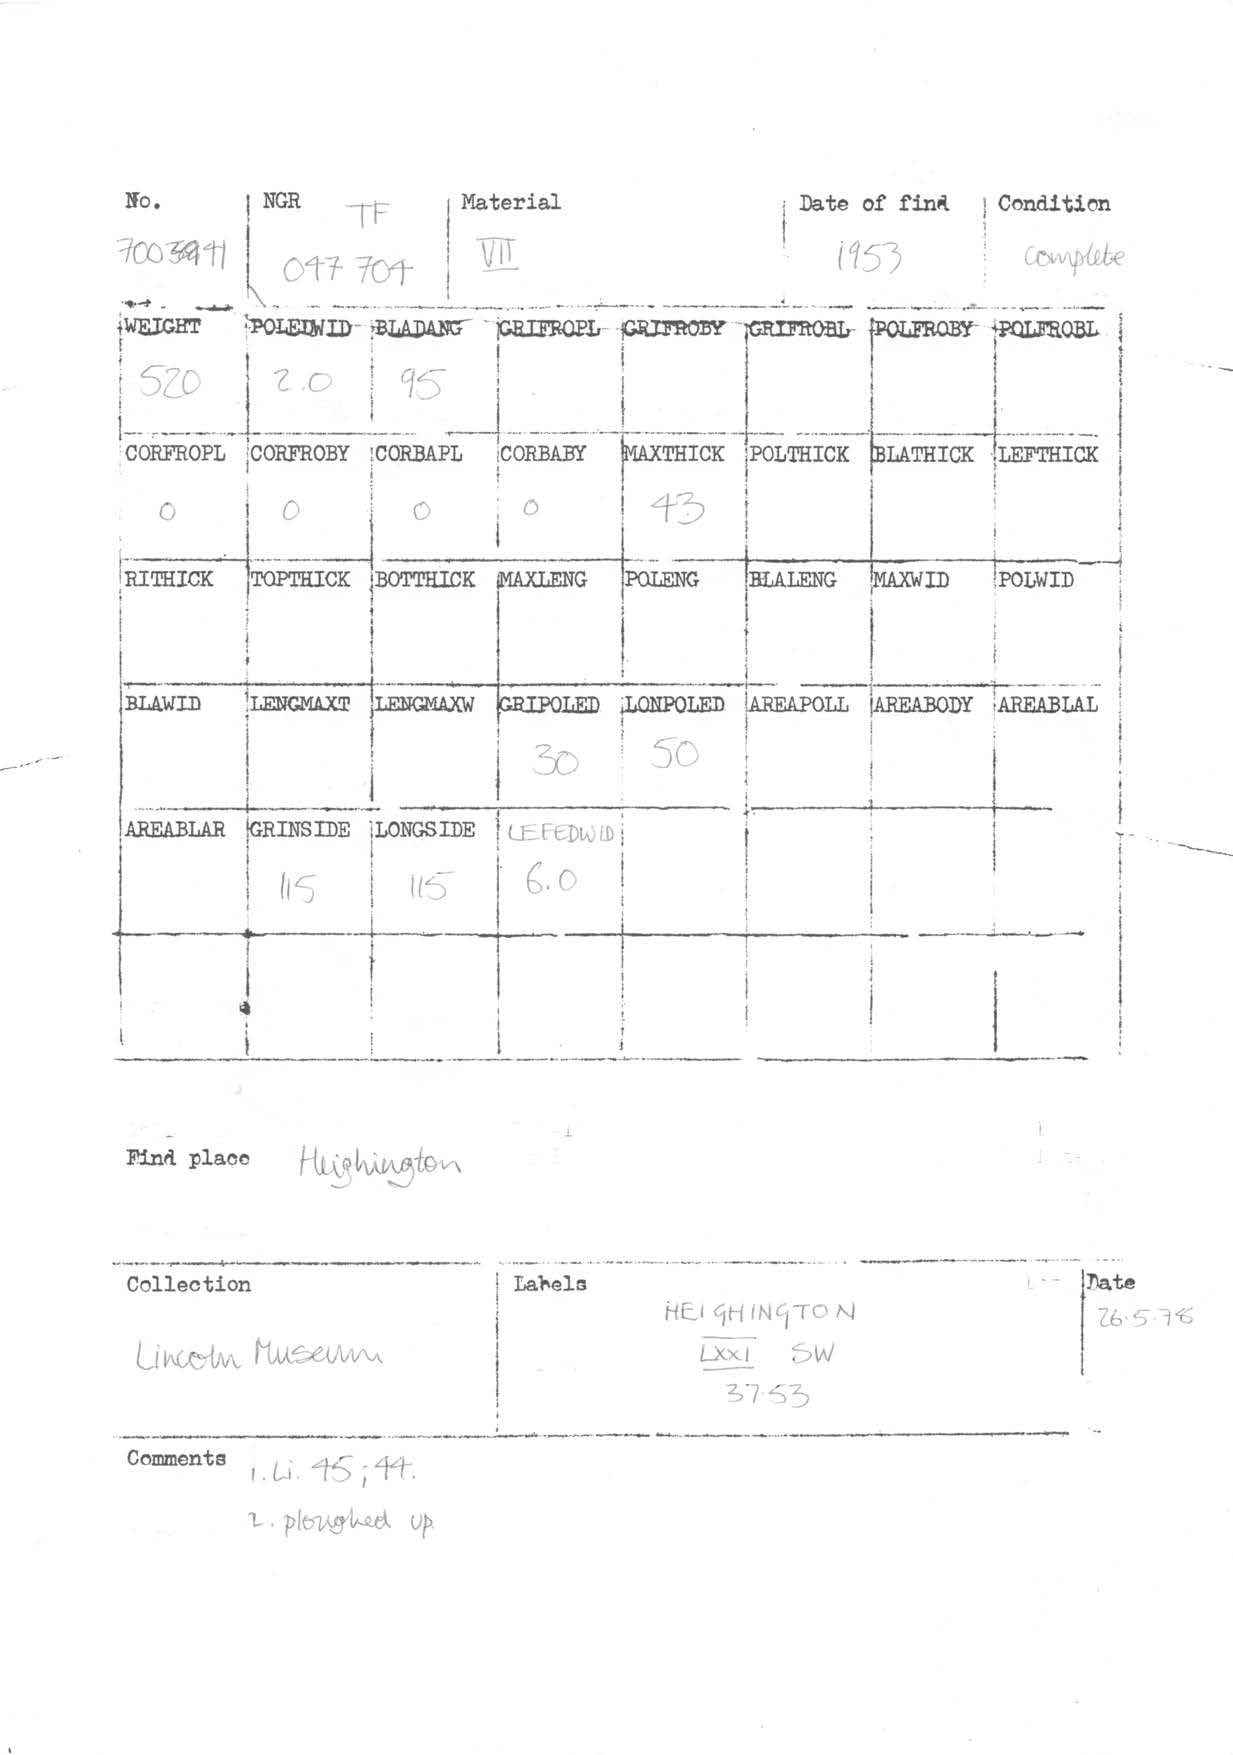 No. NGR TF Material Date of find Condition
047 704 VII 1953 complete
WEIGHT POLEDWID BLADANG GRIFROPL GRIFROBY GRIFROBL POLFROBY POLFROBL
520 2.0 95
CORFROPL CORFROBY CORBAPL CORBABY MAXTHICK POLTHICK BLATHICK LEFTHICK
0 0 0 0 43
RITHICK TOPTHICK BOTTHICK MAXLENG POLENG BLALENG MAXWID POLWID
BLAWID LENGMAXT LENGMAXW GRIPOLED LONPOLED AREAPOLL AREABODY AREABLAL
30 50
AREABLAR GRINSIDE LONGSIDE LEFEDWID
115 115 6.0
Find place Heighington
Collection Labels Date
HEIGHINGTON 26.5.78
Lincoln Museum LXXI SW
37.53
Comments 1. Li. 45; 44.
2. ploughed up.